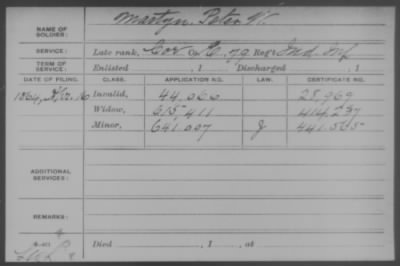 NAME OF SOLDIER: Martyn, Peter W.
SERVICE: Late rank, Cor Co. 70 Reg't Ind. Inf
TERM OF SERVICE: Enlisted , 1 Discharged , 1
DATE OF FILING. CLASS. APPLICATION NO. LAW. CERTIFICATE NO.
1864, Invalid, 44,066 28,969
Widow, 615,411 414,237
Minor, 641,007 441,535
ADDITIONAL SERVICES:
REMARKS:
Died , 1 , at